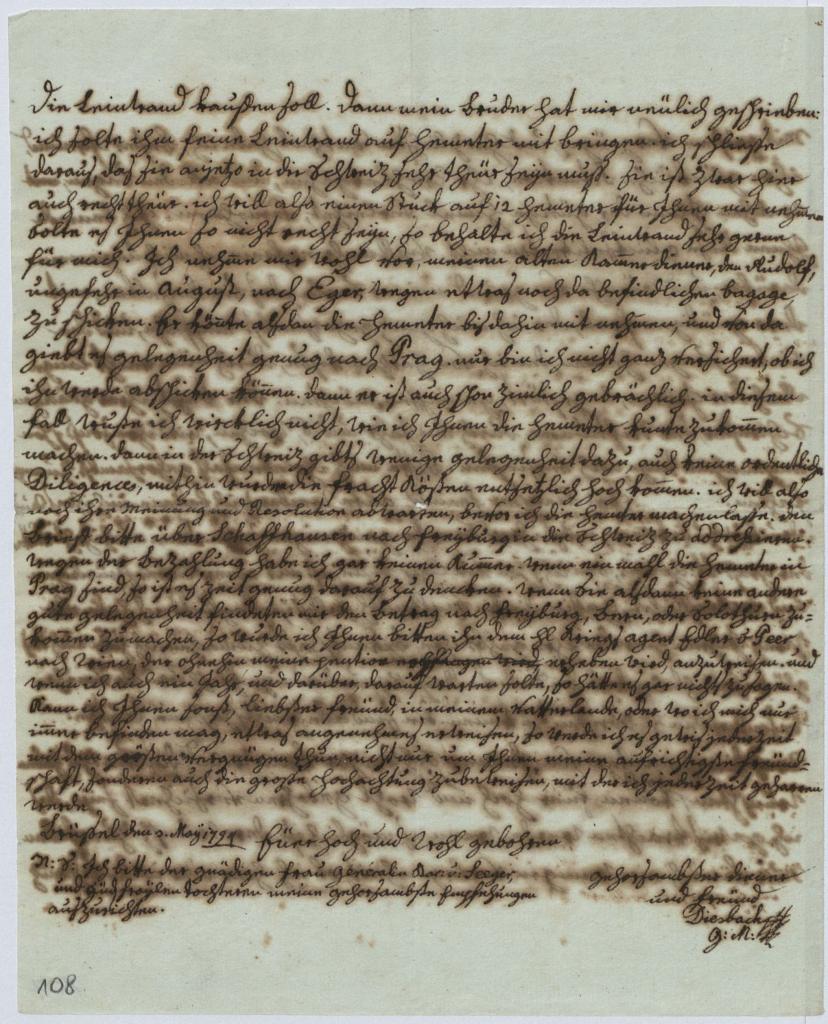 die Leintwand kauffen soll. dann mein bruder hat mir neülich geschrieben:
ich solte ihm feine Leintwand auf hemeter mit bringen. ich schliesse
daraus, das sie anjetzo in der Schweiz sehr theür seyn muss. sie ist zwar hier
auch recht theür. ich will also einen Stück auf 12 hemeter für Ihnen mit nehmen
solte es Ihnen so nicht recht seyn, so behalte ich die Leintwand sehr gerne
für mich. Ich nehme mir wohl vor, meinen alten Kammerdiener, den Rudolf,
ungefehr in August, nach Eger, wegen ettwas noch da befindlichen bagage
zu schicken. Er könte alsdan die hemeter bis dahin mit nehmen, und von da
giebt es gelegenheit genug nach Prag. nur bin ich nicht ganz versichert, ob ich
ihn werde abschicken können. dann er ist auch schon zimlich gebrächlich. in diesem
fall wuste ich wircklich nicht, wie ich Ihnen die hemeter kunte zukommen
machen. dann in der Schweiz gibts wenige gelegenheit dazu, auch keine ordentliche
Diligences, mithin wurden die fracht Kösten entsetzlich hoch kommen. ich will also
noch ihre Meinung und Resolution abwarten, bevor ich die hemeter machen lasse. den
brieff bitte über Schaffhausen nach freyburg in die Schweiz zu addressieren.
wegen der bezahlung habe ich gar keinen Kummer. wenn ein mahl die hemeter in
Prag sind, so ist es zeit genug darauf zu dencken. wenn sie alsdann keine andere
gute gelegenheit findeten mir den betrag nach freyburg, bern, oder Solothurn zu-
kommen zu machen, so wurde ich Ihnen bitten ihn dem hl Kriegs agent Edler v Peer
nach Wien, der ohnehin meine pention erheben wird, anzuweisen. und
wenn ich auch ein Jahr, und darüber, darauf warten solte, so hätte es gar nicht zu sagen.
Kann ich Ihnen sonst, liebster freünd, in meinem Vatterlande, oder wo ich mich nur
immer befinden mag, ettwas angenehmes erweisen, so werde ich es gewis jederzeit
mit dem grösten Vergnügen thun, nicht nur um Ihnen meine aufrichtigste freünd-
schaft, sonderen auch die grosse hochachtung zu beweisen, mit der ich jederzeit geharren
werde
Brüssel den 2. May 1791 Euer hoch und wohl gebohren
N: S: Ich bitte der gnädigen frau Généralin v: Seeger,
und fräülen töchteren meine gehorsambste Empfehlungen
auszurichten.
gehorsambster diener
und freünd
Diesbach
G: M:
108